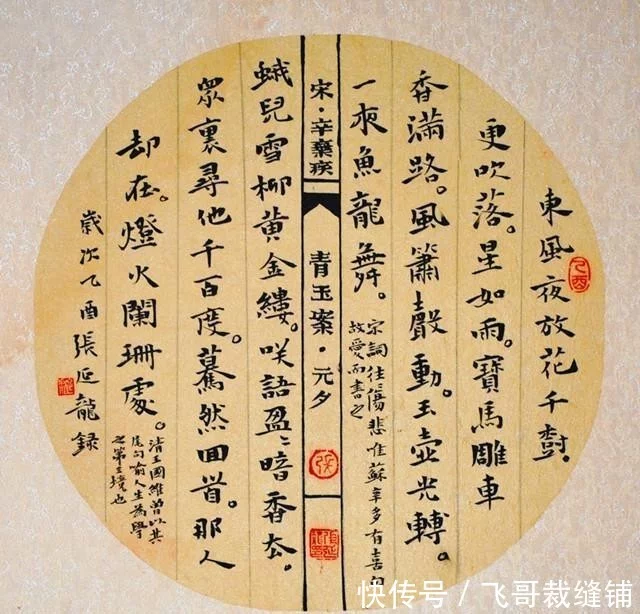 東風夜放花千樹.
更吹落。星如雨。寶馬雕車
香滿路。風簫聲動。玉壺光轉。
一夜魚龍舞。
宋詞往往傷悲唯蘇辛多有喜句
故愛而書之
宋·辛棄疾
青玉案·元夕
蛾兒雪柳黃金縷。咲語盈〻暗香去。
眾裏尋他千百度。驀然回首。那人
却在。燈火闌珊處。
清王國維曾以其
尾句喻人生為學
之第三境也
歲次乙酉張延龍錄
乙酉
快传号 / 飞哥裁缝铺